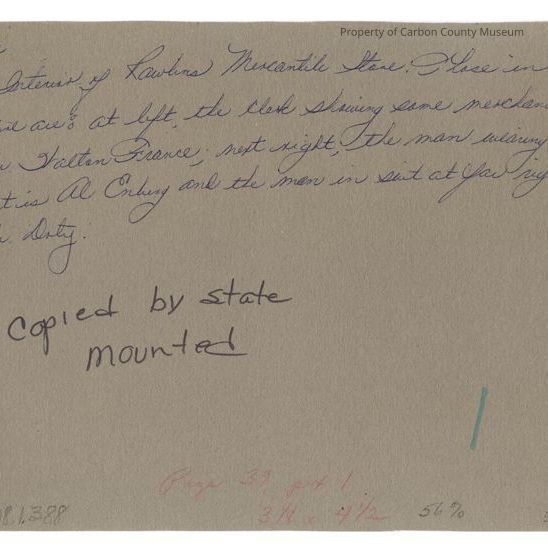 Property of Carbon County Museum
Interior of Rawlins Mercantile Store. Those in
are: at left, the clerk showing some merchan
Walton France; next right, the man wearing
t is Al Enberg and the man in suit at far rig
Doty.
copied by state
mounted
Page 39 pix 1
3 1/4 x 4 1/2
56%
81.388